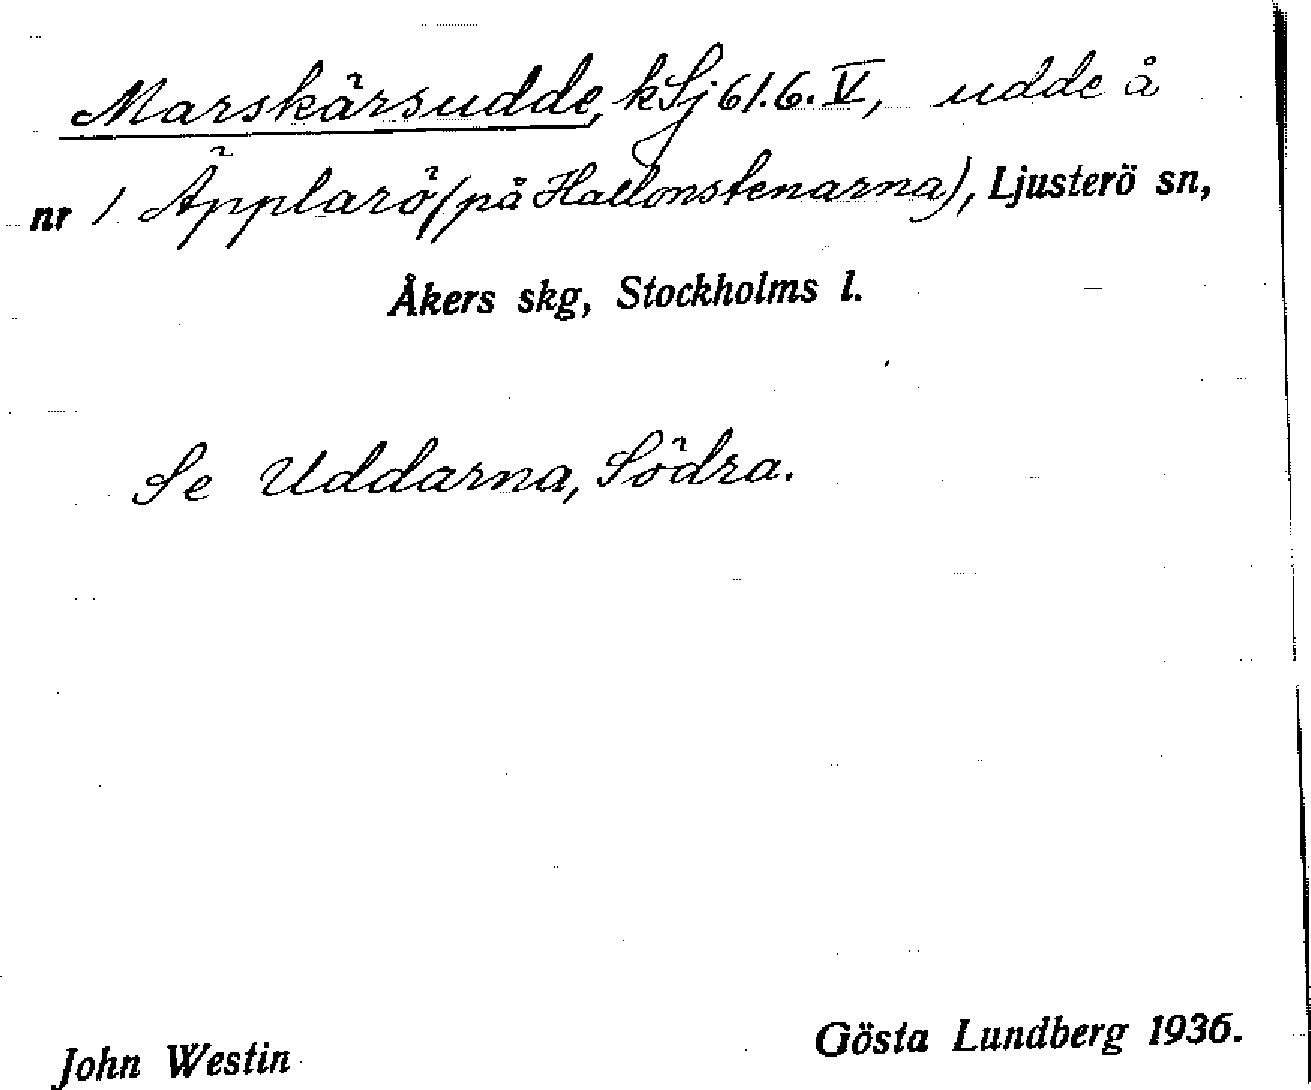 Marskärsudde, kSj 61.6.V, udde å
nr 1 Äpplarö (på Hallonstenarna), Ljusterö sn,
Åkers skg, Stockholms l.
Se Uddarna, Södra.
John Westin
Gösta Lundberg 1936.